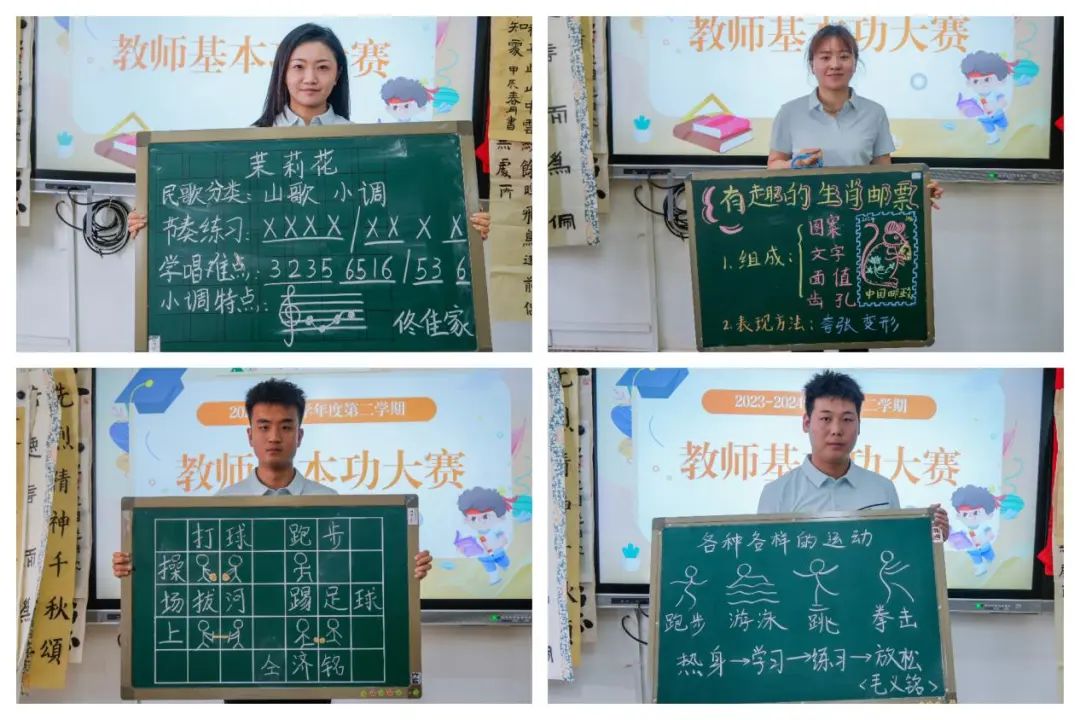 教师基本功大赛
茉莉花
民歌分类：山歌 小调
节奏练习：X X X X / X X X X
学唱难点：3 2 3 5 6 5 1 6 / 5 3 6
小调特点：
佟佳家
教师基本功大赛
有趣的生肖邮票
1.组成：
图案
文字
面值
齿孔
中国邮政
2.表现方法：夸张 变形
学年度第二学期
教师基本功大赛
打球 跑步
操
场拔河 踢足球
上
仝济铭
先烈精神千秋颂
2023-2024 二学期
教师基本功大赛
各种各样的运动
跑步 游泳 跳 拳击
热身→学习→练习→放松
<毛义铭>